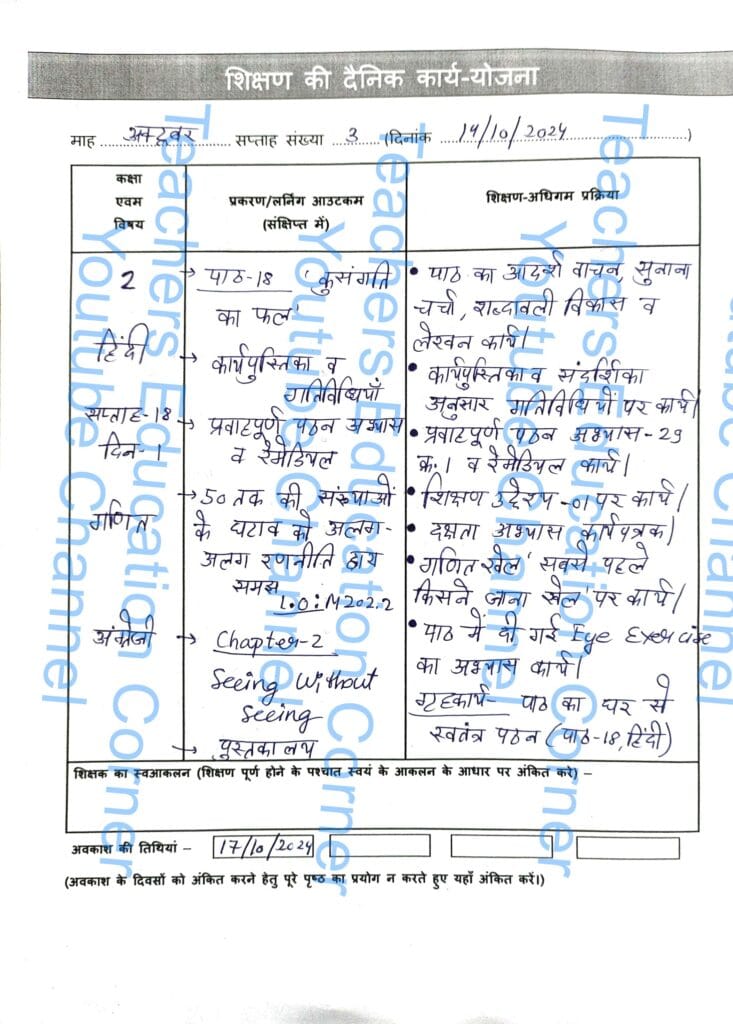 शिक्षण की दैनिक कार्य-योजना
माह अक्टूबर सप्ताह संख्या 3 (दिनांक 14/10/2024)
कक्षा
एवम
विषय
प्रकरण/लर्निंग आउटकम
(संक्षिप्त में)
शिक्षण-अधिगम प्रक्रिया
2
हिंदी
सप्ताह-18
दिन-1
गणित
अंग्रेजी
→ पाठ-18 'कुसंगति
का फल'
→ कार्यपुस्तिका व
गतिविधियाँ
→ प्रवाहपूर्ण पठन अभ्यास
व रेमेडियल
→ 50 तक की संख्याओं
के घटाव को अलग-
अलग रणनीति द्वारा
समझ
L.O: M202.2
→ Chapter-2
Seeing Without
Seeing
→ पुस्तकालय
• पाठ का आदर्श वाचन, सुनाना
चर्चा, शब्दावली विकास व
लेखन कार्य।
• कार्यपुस्तिका व संदर्शिका
अनुसार गतिविधियों पर कार्य।
• प्रवाहपूर्ण पठन अभ्यास-29
क्र.1 व रेमेडियल कार्य।
• शिक्षण उद्देश्य-01 पर कार्य।
• दक्षता अभ्यास कार्यपत्रक।
• गणित खेल 'सबसे पहले
किसने जाना खेल' पर कार्य।
• पाठ में दी गई Eye Exercise
का अभ्यास कार्य।
गृहकार्य- पाठ का घर से
स्वतंत्र पठन (पाठ-18, हिंदी)
शिक्षक का स्वआकलन (शिक्षण पूर्ण होने के पश्चात स्वयं के आकलन के आधार पर अंकित करे) –
अवकाश की तिथियां – 17/10/2024
(अवकाश के दिवसों को अंकित करने हेतु पूरे पृष्ठ का प्रयोग न करते हुए यहाँ अंकित करें।)
Teachers Education Corner
Youtube Channel
Teachers Education Corner
Youtube Channel
Teachers Education Corner
Youtube Channel